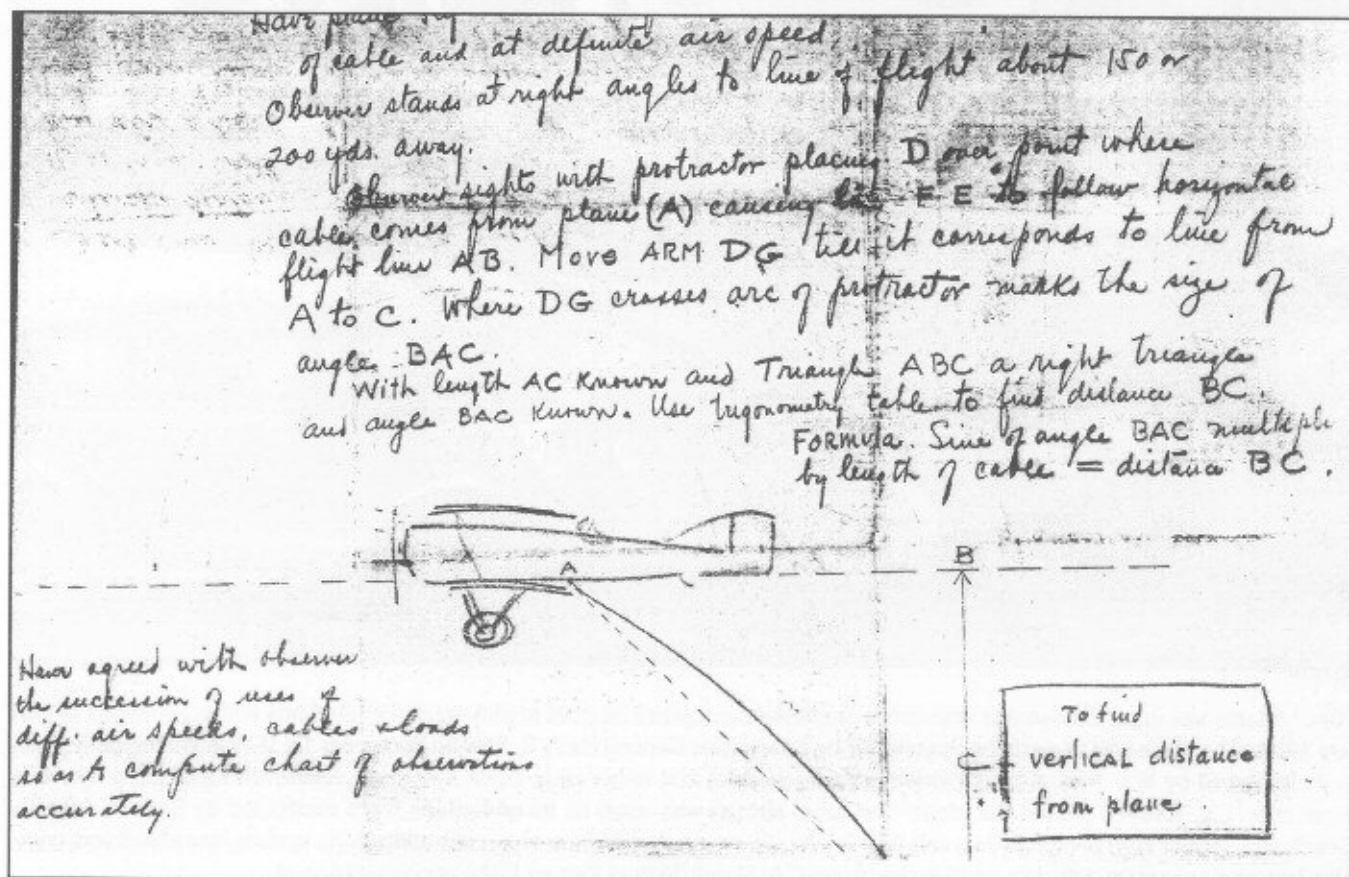 Have plane
of cable and at definite air speed.
Observer stands at right angles to line of flight about 150 or
200 yds. away.
Observer sights with protractor placing D over point where
cable comes from plane (A) causing F E to follow horizontal
flight line AB. Move ARM DG till it corresponds to line from
A to C. Where DG crosses arc of protractor marks the size of
angle BAC.
With length AC Known and Triangle ABC a right triangle
and angle BAC Known. Use trigonometry table to find distance BC.
FORMULA. Sine of angle BAC multiple
by length of cable = distance BC.
A
B
Have agreed with observer
the succession of uses of
diff. air speeds, cables & loads
so as to compute chart of observations
accurately.
To find
VERTICAL distance
from plane